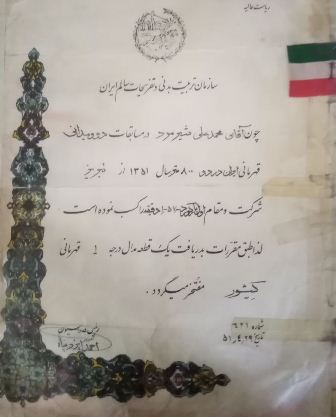 سازمان تربیت بدنی و تفریحات سالم ایران
چون آقای محمد علی شیرمرد در مسابقات دو و میدانی
قهرمانی ایران در دوی ۸۰۰ متر سال ۱۳۵۱ از
شرکت و مقام دقیقه کسب نموده است
لذا طبق مقررات بدریافت یک قطعه مدال درجه ۱ قهرمانی
کشور مفتخر میگردد .
شماره ۶۲۱
تاریخ ۵۱٫۴٫۲۹